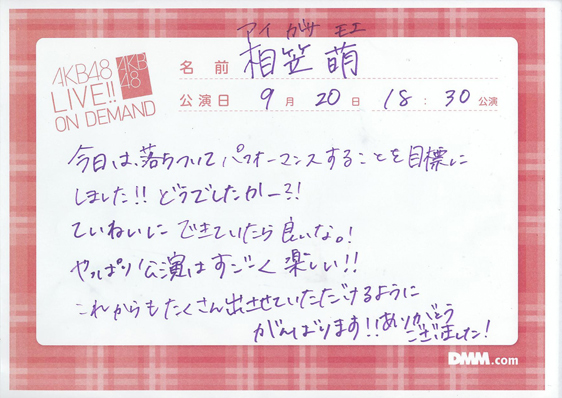 アイ がサ モエ
AKB48
LIVE!!
ON DEMAND
AKB
48
名 前 相笠 萌
公演日 9 月 20 日 18 : 30 公演
今日は、落ちついてパフォーマンスすることを目標に
しました!!どうでしたかー?!
ていねいにできていたら良いな。!
やっぱり公演はすごく楽しい!!
これからもたくさん出させていただけるように
がんばります!!ありがとう
ございました!
DMM.com